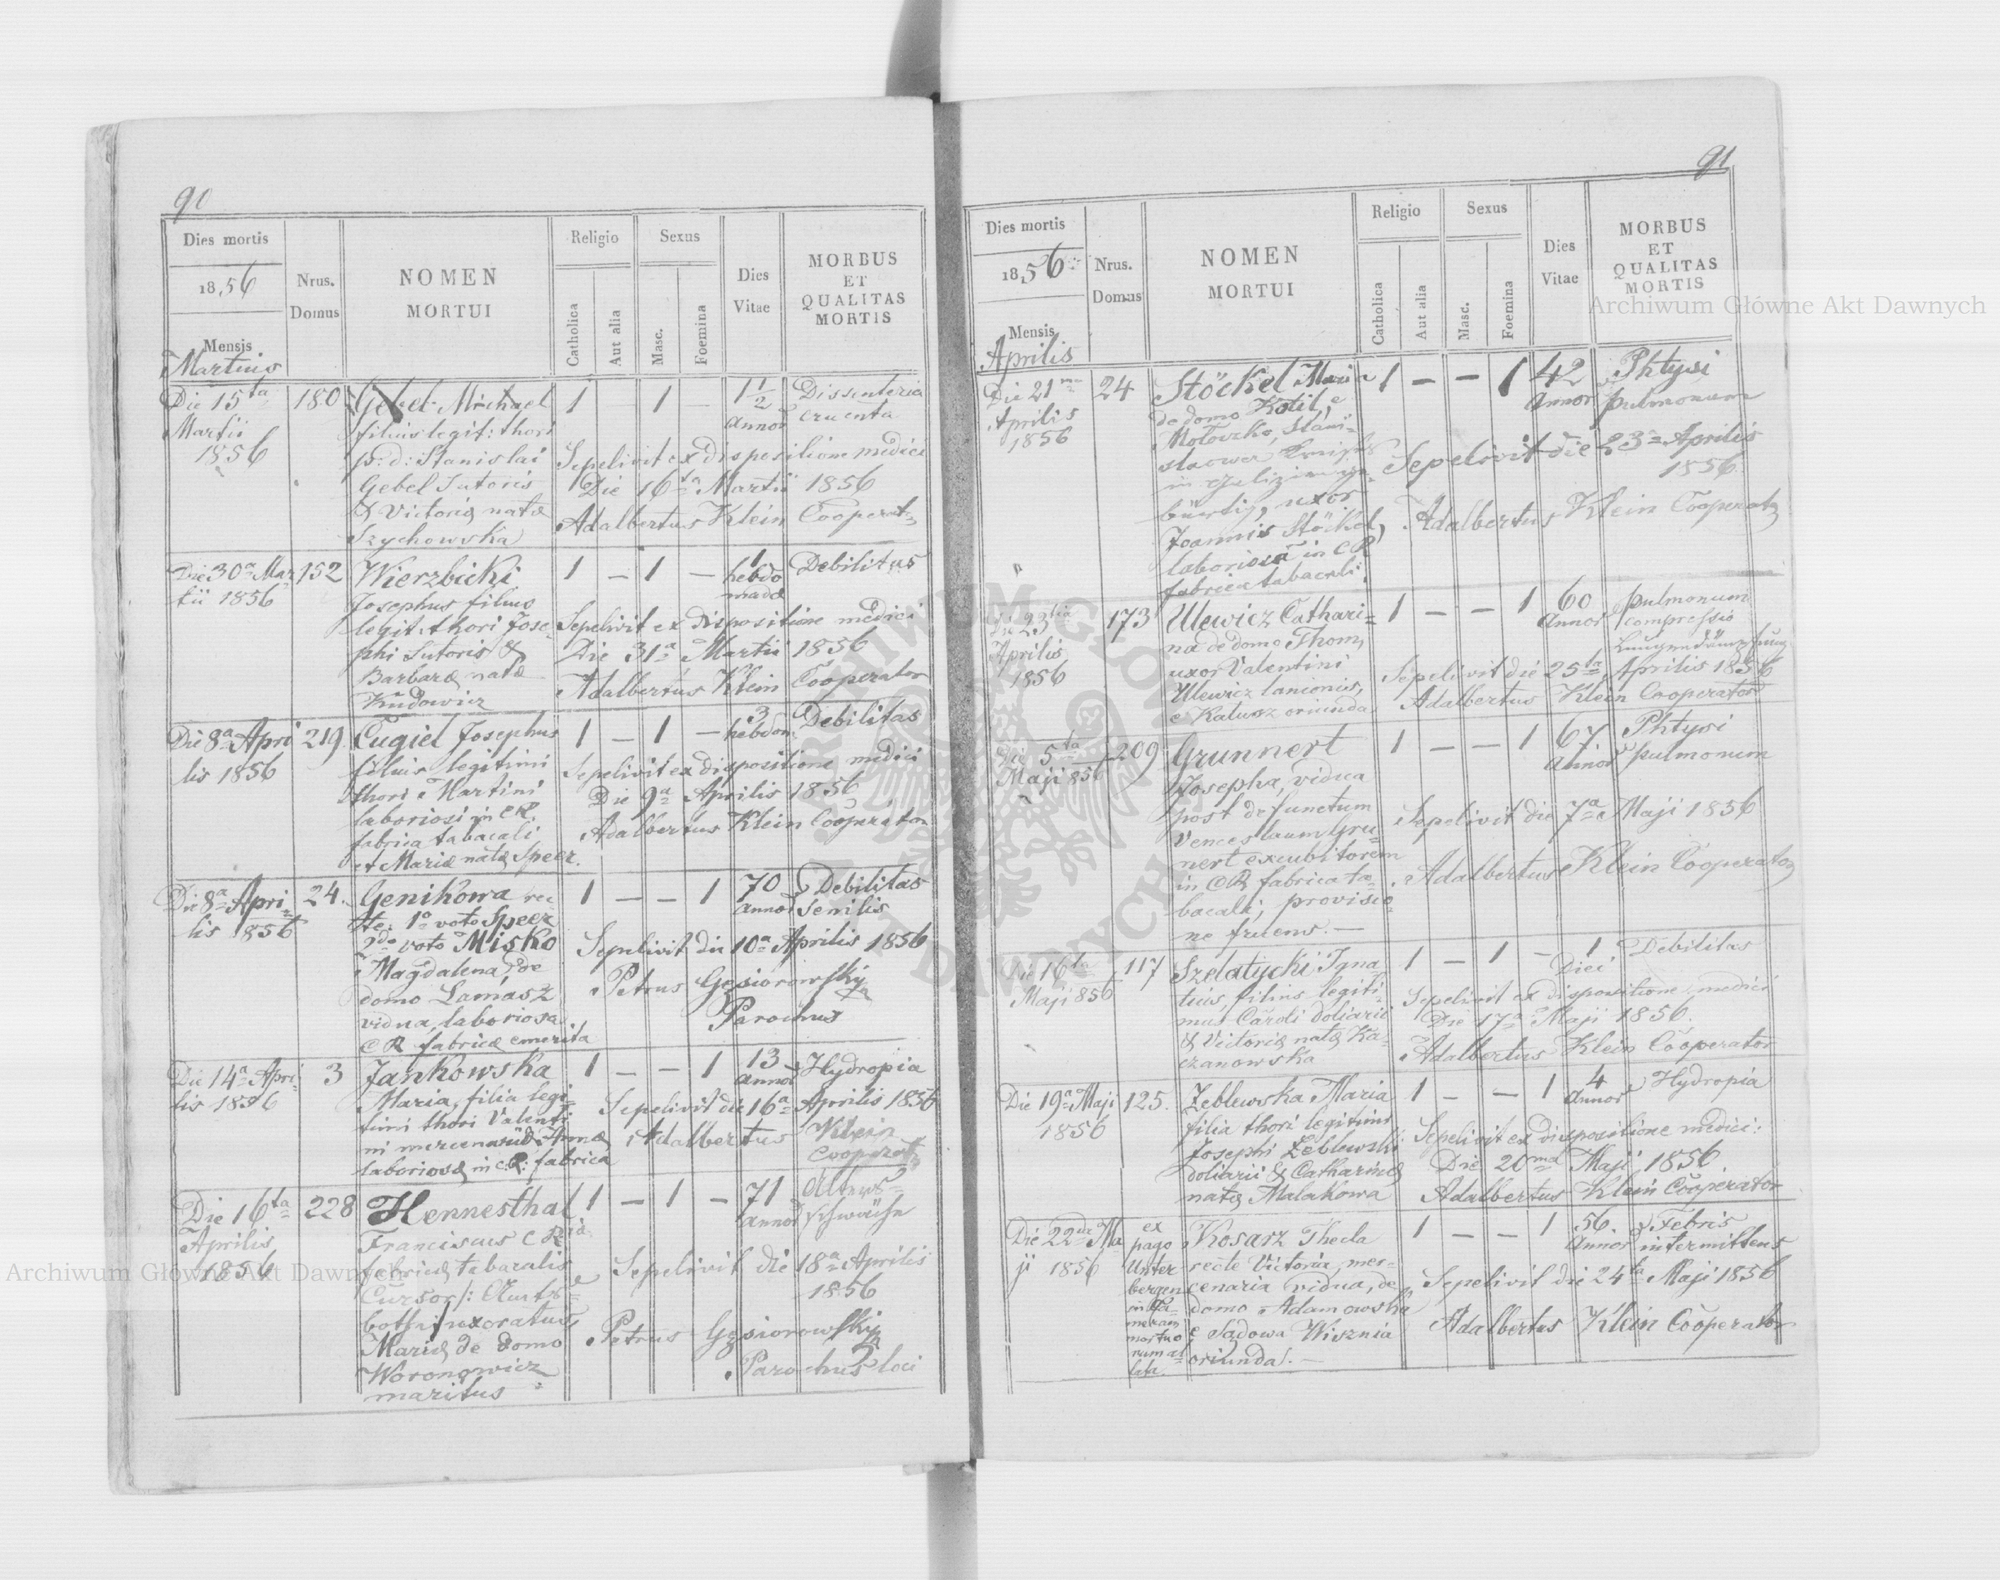 90
Dies mortis
1856
Mensis
Martius
Nrus.
Domus
NOMEN
MORTUI
Religio
Catholica
Aut alia
Sexus
Masc.
Foemina
Dies
Vitae
MORBUS
ET
QUALITAS
MORTIS
Die 15ta
Martii
1856
180
Gebel Michael
filius legit: thori
p: d: Stanislai
Gebel Sutoris
& Victoriæ natæ
Szychowska
1 1 —
1 1/2
annor
Dissenteria
cruenta
Sepelivit ex dispositione medici
Die 16ta Martii 1856
Adalbertus Klein Cooperat
Die 30a Mar
tii 1856
152
Wierzbicki
Josephus filius
legit. thori Jose-
phi Sutoris &
Barbaræ natæ
Kudowicz
1 — 1 —
1
hebdo
madæ
Debilitas
Sepelivit ex dispositione medici
Die 31a Martii 1856
Adalbertus Klein Cooperator
Die 8a Apri
lis 1856
219
Cugiel Josephus
filius legitimi
thori Martini
laboriosi in CR.
fabrica tabacali
et Mariæ natæ Speer.
1 — 1 —
3
hebdom.
Debilitas
Sepelivit ex dispositione medici
Die 9a Aprilis 1856
Adalbertus Klein Cooperator
Die 8a Apri-
lis 1856
24.
Genikowa rec
te 1o voto Speer
2do voto Misko
Magdalena, de
domo Lamasz
vidua, laboriosa
CR fabricæ emerita
1 — — 1
70
annor
Debilitas
senilis
Sepelivit die 10a Aprilis 1856
Petrus Gąsiorowski
Parochus
Die 14a Apri-
lis 1856
3
Jankowska
Maria, filia legi-
timi thori Valenti
ni mercenarii & Annæ
laboriosæ in C:R: fabrica
1 — — 1
13
annor
Hydropia
Sepelivit die 16a Aprilis 1856
Adalbertus Klein
Cooperat
Die 16ta
Aprilis
1856
228
Hennesthal
Franciscus C R
fabricæ tabacalis
Cursor /: Amts-
bothe:/ uxoratus,
Mariæ de domo
Woronowicz
maritus
1 — 1 —
71
annor
Alters-
schwäche
Sepelivit die 18a Aprilis
1856
Petrus Gąsiorowski
Parochus loci
91
Dies mortis
1856
Mensis
Aprilis
Nrus.
Domus
NOMEN
MORTUI
Religio
Catholica
Aut alia
Sexus
Masc.
Foemina
Dies
Vitae
MORBUS
ET
QUALITAS
MORTIS
Die 21ma
Aprilis
1856
24
Stöckel Maria
de domo Kotil, e
Mołoczko, Stani-
slauer
in Galizien ge-
bürtig, uxor
Joannis Stöckel,
laboriosa in CR
fabrica tabacali
1 — — 1
42
annor
Phtysi
pulmonum
Sepelivit die 23a Aprilis
1856
Adalbertus Klein Cooperator
Die 23tia
Aprilis
1856
173
Ulewicz Cathari-
na de domo Thom,
uxor Valentini
Ulewicz lanionis,
e Kałusz oriunda
1 — — 1
60
annor
pulmonum
compressio
Sepelivit die 25ta Aprilis 1856
Adalbertus Klein Cooperator
Die 5ta
Maji 856
209
Grunnert
Josepha, vidua
post defunctum
Venceslaum Gru-
nert excubitorem
in CR fabrica ta-
bacali, provisio-
ne fruens. —
1 — — 1
67
annor
Phtysi
pulmonum
Sepelivit die 7a Maji 1856
Adalbertus Klein Cooperator
Die 16ta
Maji 856
117
Szelatycki Igna-
tius, filius legiti-
mus Caroli doliarii
& Victoriæ natæ Ka-
czanowska
1 — 1 —
1
Diei
Debilitas
Sepelivit ex dispositione medici
Die 17a Maji 1856.
Adalbertus Klein Cooperator
Die 19a Maji
1856
125.
Żeblewska Maria
filia thori legitimi
Josephi Żeblewski
doliarii & Catharinæ
natæ Malakowa
1 — — 1
4
annor
Hydropia
Sepelivit ex dispositione medici:
Die 20ma Maji 1856
Adalbertus Klein Cooperator
Die 22da Ma
ji 1856
ex
pago
Unter
bergen
in ca-
meram
mortuo
rum al
lata
Kosarz Thecla
recte Victoria, mer-
cenaria vidua, de
domo Adamowska
e Sądowa Wisznia
oriunda. —
1 — — 1
56.
annor
Febris
intermittens
Sepelivit die 24ta Maji 1856
Adalbertus Klein Cooperator
Archiwum Główne Akt Dawnych
Archiwum Główne Akt Dawnych
ARCHIWUM GŁÓWNE AKT DAWNYCH